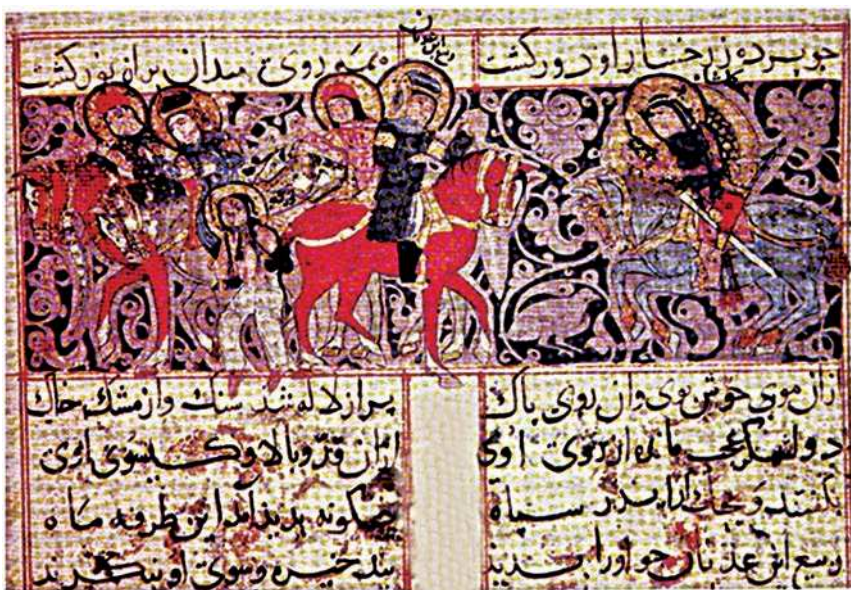 جو پرده ز رخسار او دور کشت همه روی میدان پر از نور کشت
کلشاه
ازان موی خوش بوی وان روی باک پر از لاله شد سنک واز مشک خاک
دو لشکر عجب مانده از روی اوی ازان قد و بالا و کیسوی اوی
سپاه جکونه بدیذ آمذ این طرفه ماه
ربیع ابن عدنان جو اورا بدیذ خیره و سوی او بنکرید